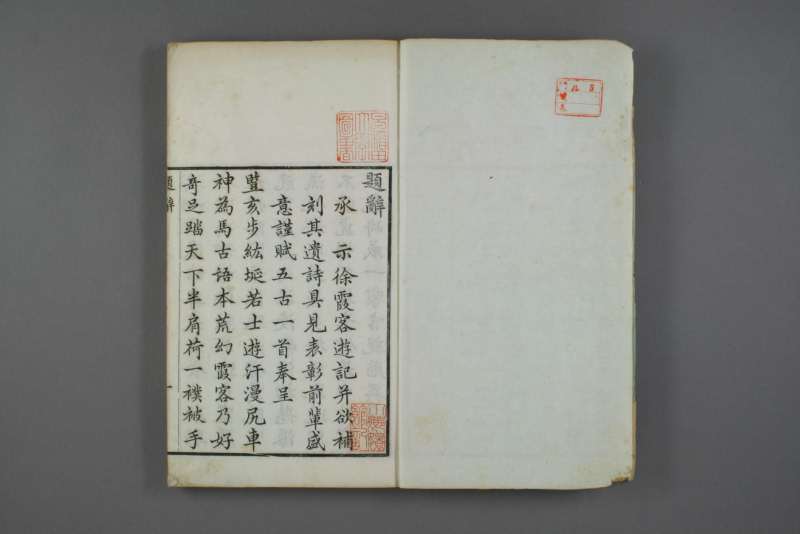 題辭
承　示徐霞客遊記并欲補
刻其遺詩具見表彰前輩盛
意謹賦五古一首奉呈
豎亥步紘埏若士遊汗漫尻車
神為馬古語本荒幻霞客乃好
奇足踏天下半肩荷一襆被手
題辭
一